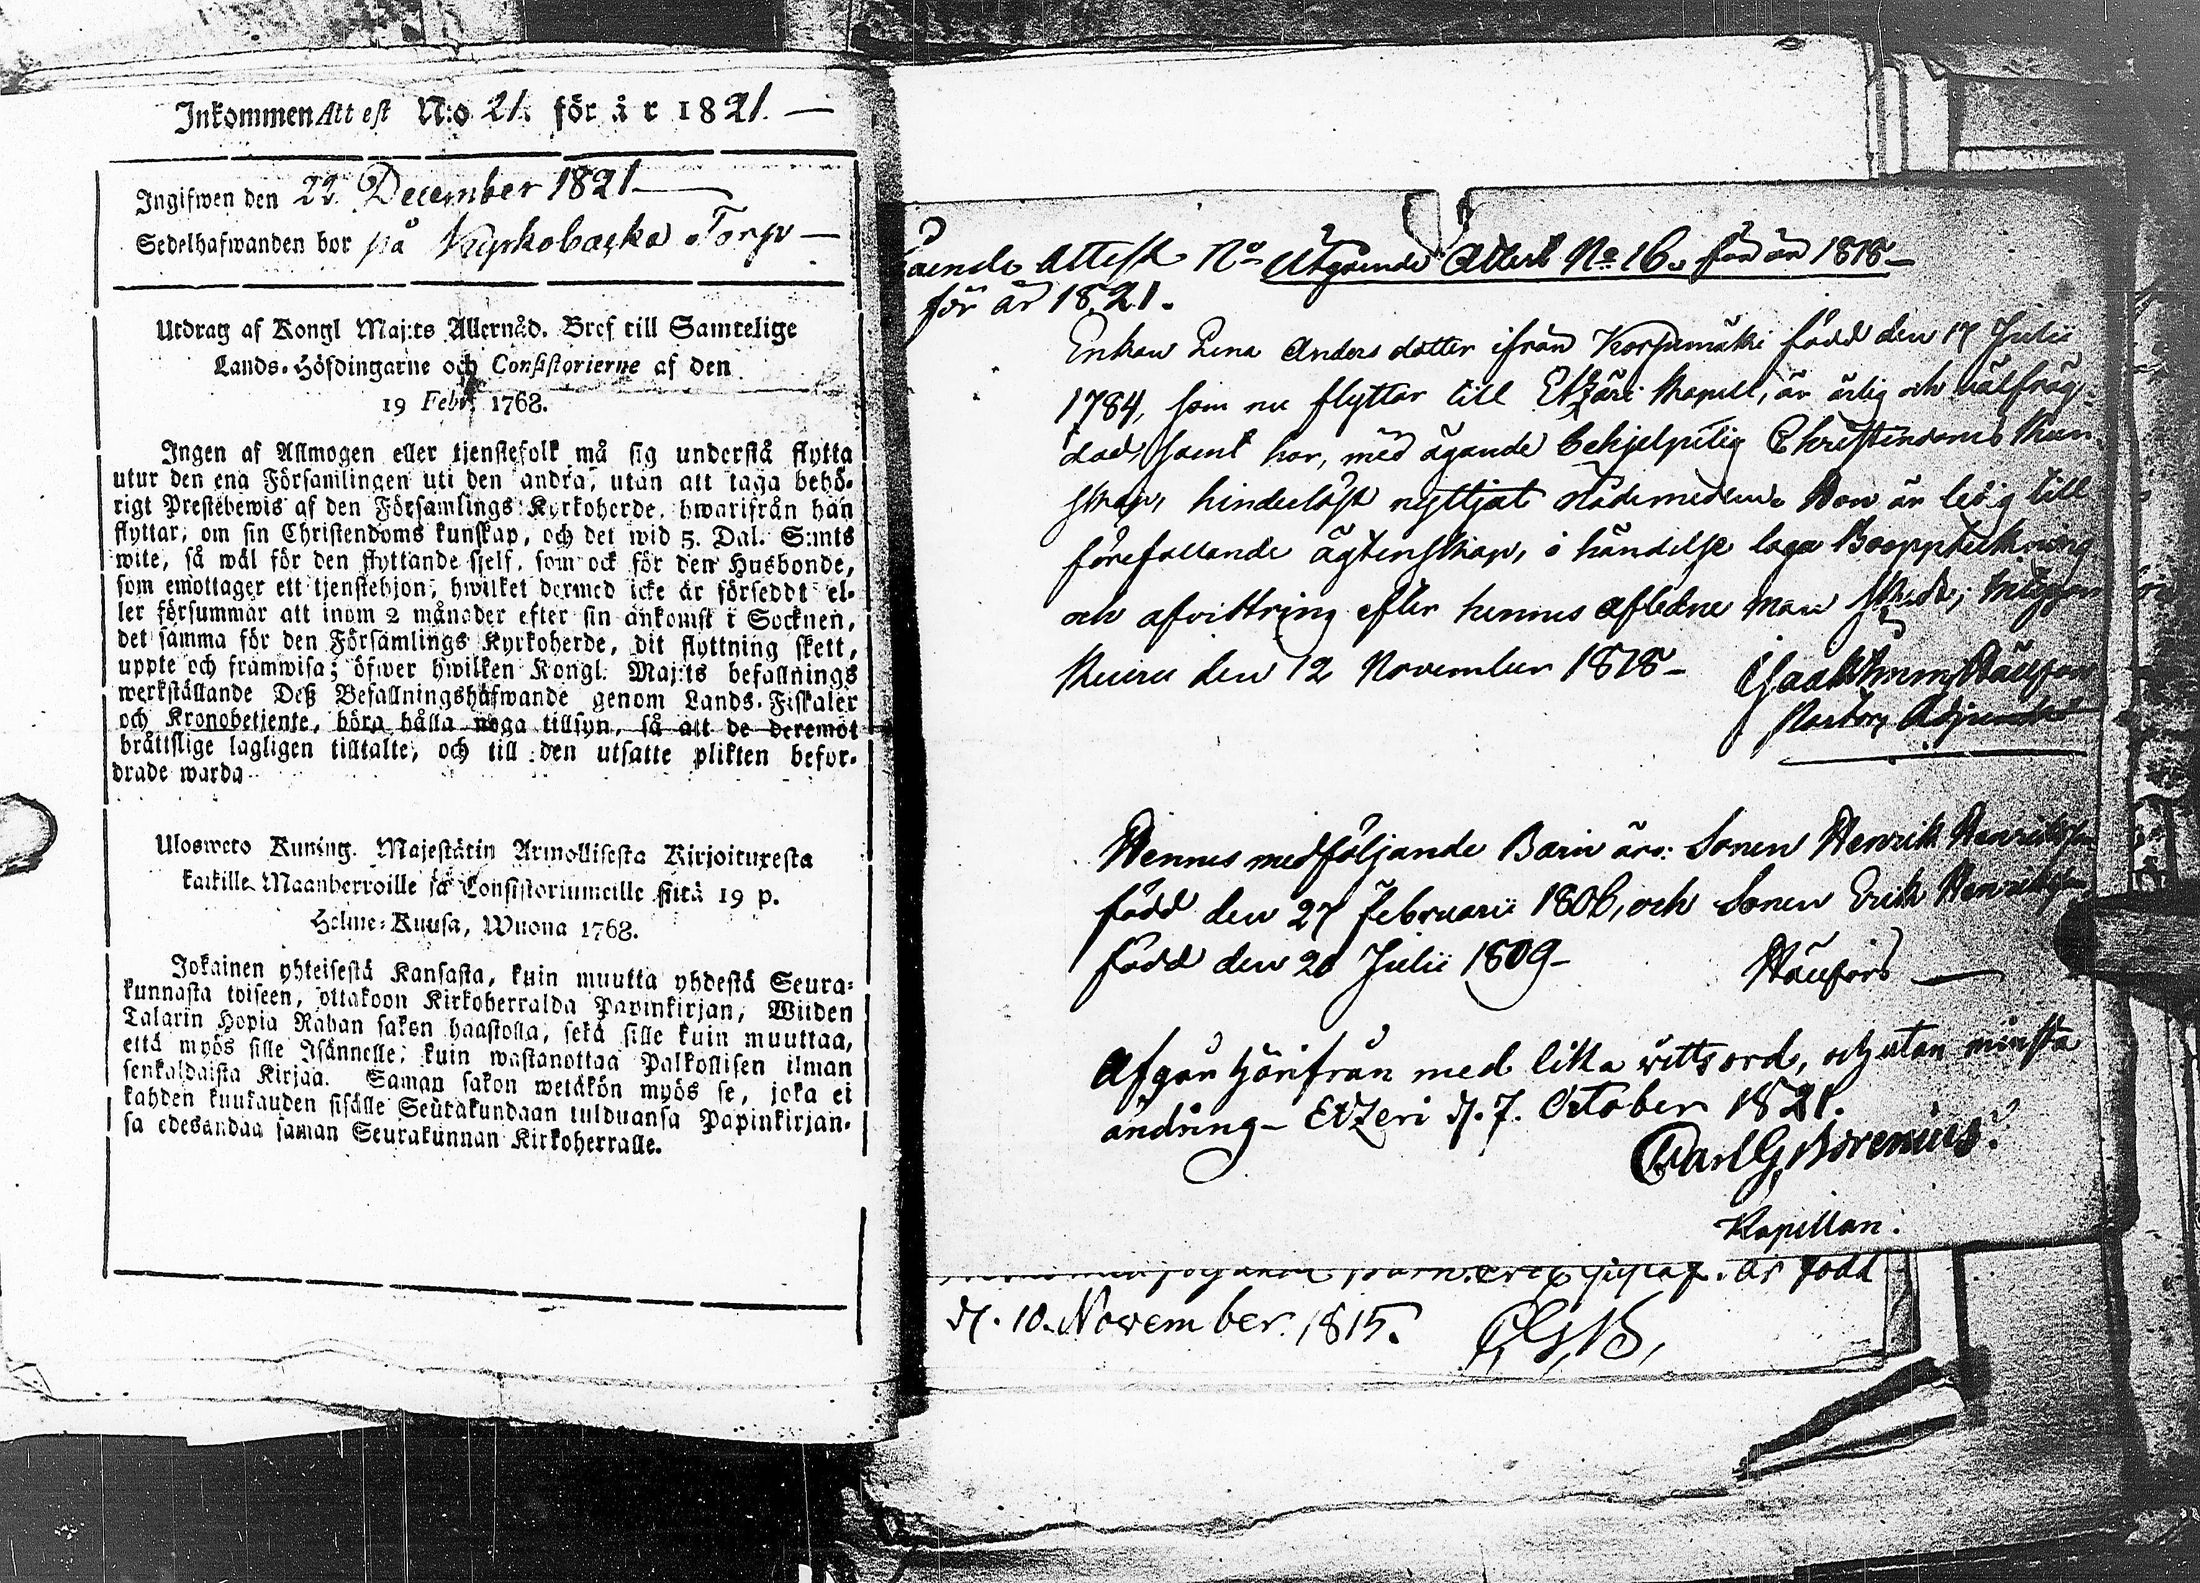 Inkommen Attest N:o 21. för år 1821. —
Ingifwen den 22 December 1821 —
Sedelhafwanden bor på Kyrkobacka Torp —
Utdrag af Kongl Maj:ts Allernåd. Bref till Samtelige
Lands-Höfdingarne och Consistorierne af den
19 Febr. 1768.
Ingen af Allmogen eller tjenstefolk må sig understå flytta
utur den ena Församlingen uti den andra, utan att taga behö-
rigt Prestebewis af den Församlings Kyrkoherde, hwarifrån han
flyttar, om sin Christendoms kunskap, och det wid 5. Dal. S:mts
wite, så wäl för den flyttande sjelf, som ock för den Husbonde,
som emottager ett tjenstehjon, hwilket dermed icke är förseddt el-
ler försummar att inom 2 månader efter sin ankomst i Socknen,
det samma för den Församlings Kyrkoherde, dit flyttning skett,
uppte och framwisa; öfwer hwilken Kongl. Maj:ts befallnings
werkställande Deß Befallningshafwande genom Lands-Fiskaler
och Kronobetjente, böra hålla noga tillsyn, så att de deremot
bråttslige lagligen tilltalte, och till den utsatte plikten befor-
drade warda
Ulosweto Kuning. Majestätin Armollisesta Kirjoituxesta
kaikille Maanherroille ja Consistoriumeille siitä 19 p.
Helme-Kuusa, Wuona 1768.
Jokainen yhteisestä Kansasta, kuin muutta yhdestä Seura-
kunnasta toiseen, ottakoon Kirkoherralda Papinkirjan, Wiiden
Talarin Hopia Rahan sakon haastolla, sekä sille kuin muuttaa,
että myös sille Isännelle, kuin wastanottaa Palkollisen ilman
senkaldaista Kirjaa. Saman sakon wetäkön myös se, joka ei
kahden kuukauden sisälle Seurakundaan tulduansa Papinkirjan-
sa edesandaa saman Seurakunnan Kirkoherralle.
gaende Attest No
för år 1821.
Utgående Attest No 16. för år 1818 —
Enkan Lena Anders dotter ifrån Korpimäki född den 17 Julii
1784, som nu flyttar till Etzäri Kapell, är ärlig och välfräg-
dad, samt har, med ägande behjelpelig Christendoms Kun-
skap, hinderlöst nyttjat nådemedlen. Hon är ledig till
förefallande ägtenskap, i händelse laga Bouppteckning
och afvittring efter hennes aflidne man skedt,
Keuru den 12 November 1818 —
Pastors Adjunct
Hennes medföljande Barn äro: Sonen Henrik Henriksson
född den 27 Februarii 1806, och Sonen Erik Henriksson
född den 20 Julii 1809 —
Afgår härifrån med lika wittsord, och utan minsta
ändring — Etzeri d. 7. October 1821.
Carl G. Borenius.
Kapellan.
är född
d. 10. November. 1815.
C. G. B.